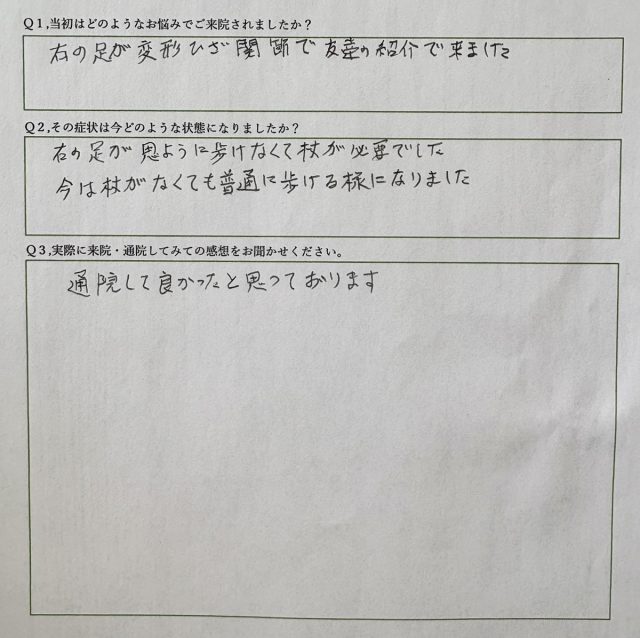 Q1,当初はどのようなお悩みでご来院されましたか?
右の足が変形ひざ関節で友達の紹介で来ました
Q2,その症状は今どのような状態になりましたか?
右の足が思ように歩けなくて杖が必要でした
今は杖がなくても普通に歩ける様になりました
Q3,実際に来院・通院してみての感想をお聞かせください。
通院して良かったと思っております